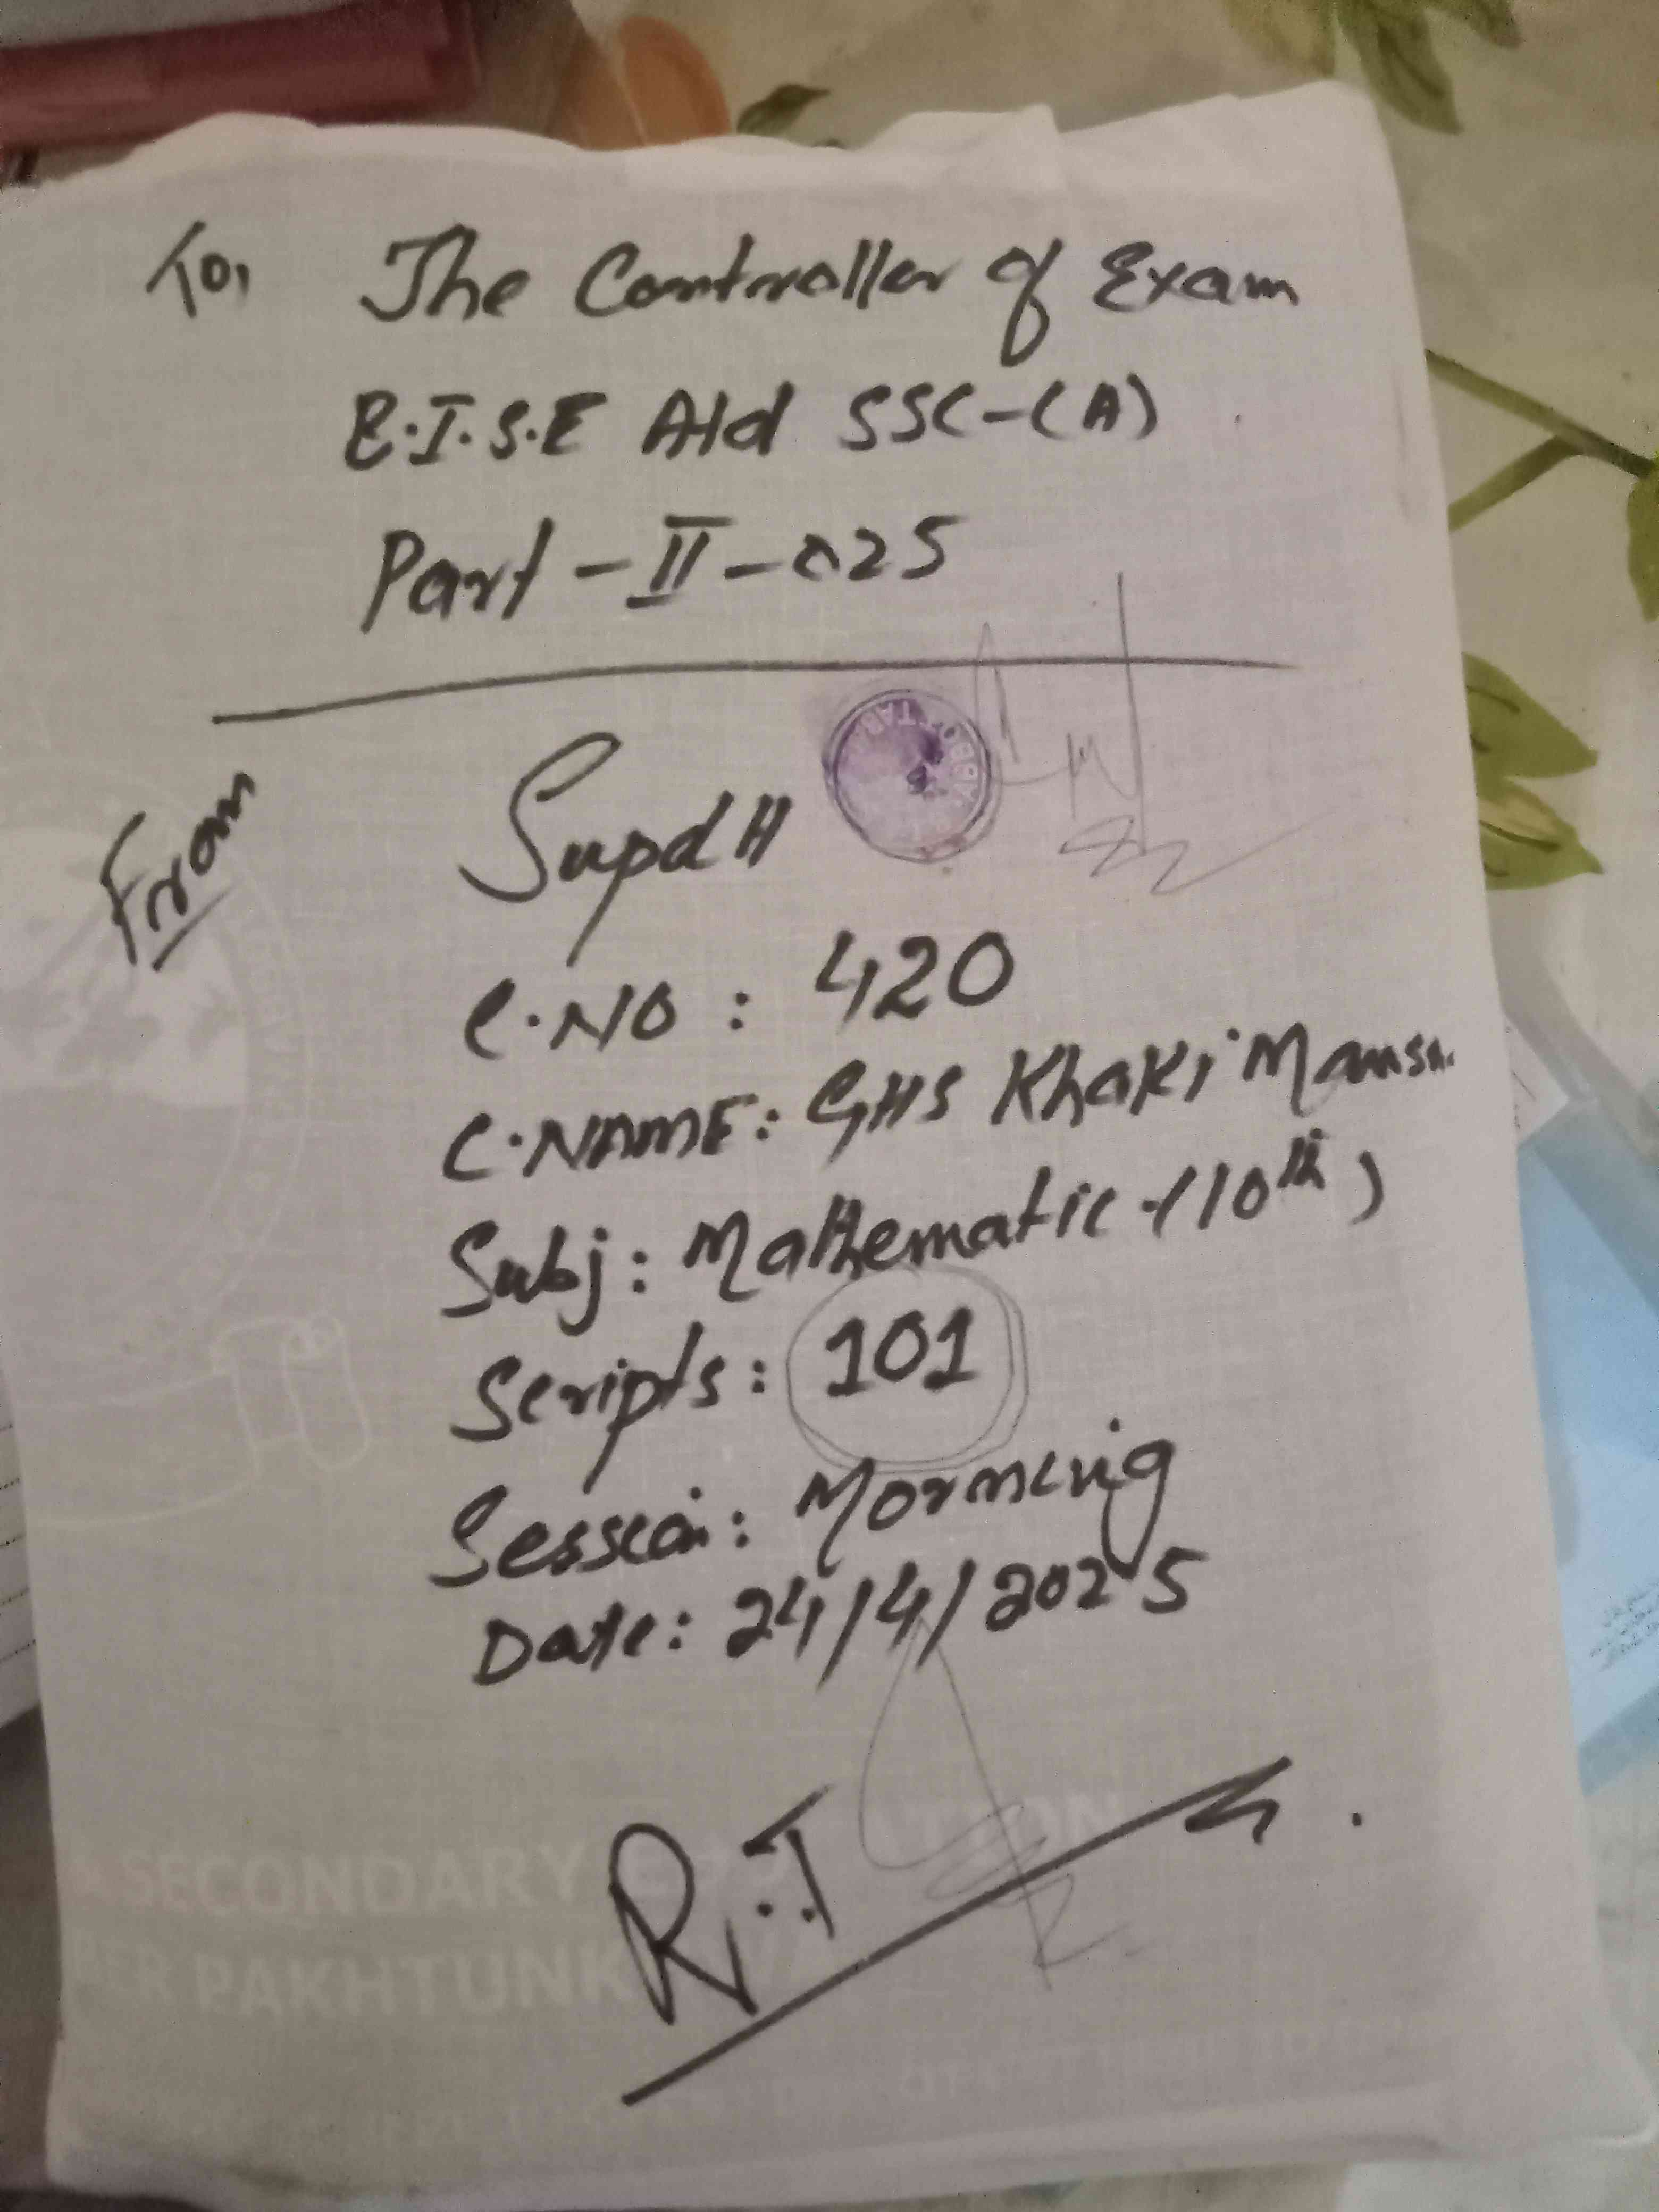 To, The Controller of Exam
B.I.S.E Atd SSC-(A)
Part-II-025
From
Supdtt
C.NO: 420
C.NAME: GHS Khaki Mansn.
Subj: Mathematic (10th)
Scripts: 101
Session: Morning
Date: 24/4/2025
R.T
SECONDARY
PAKHTUNK